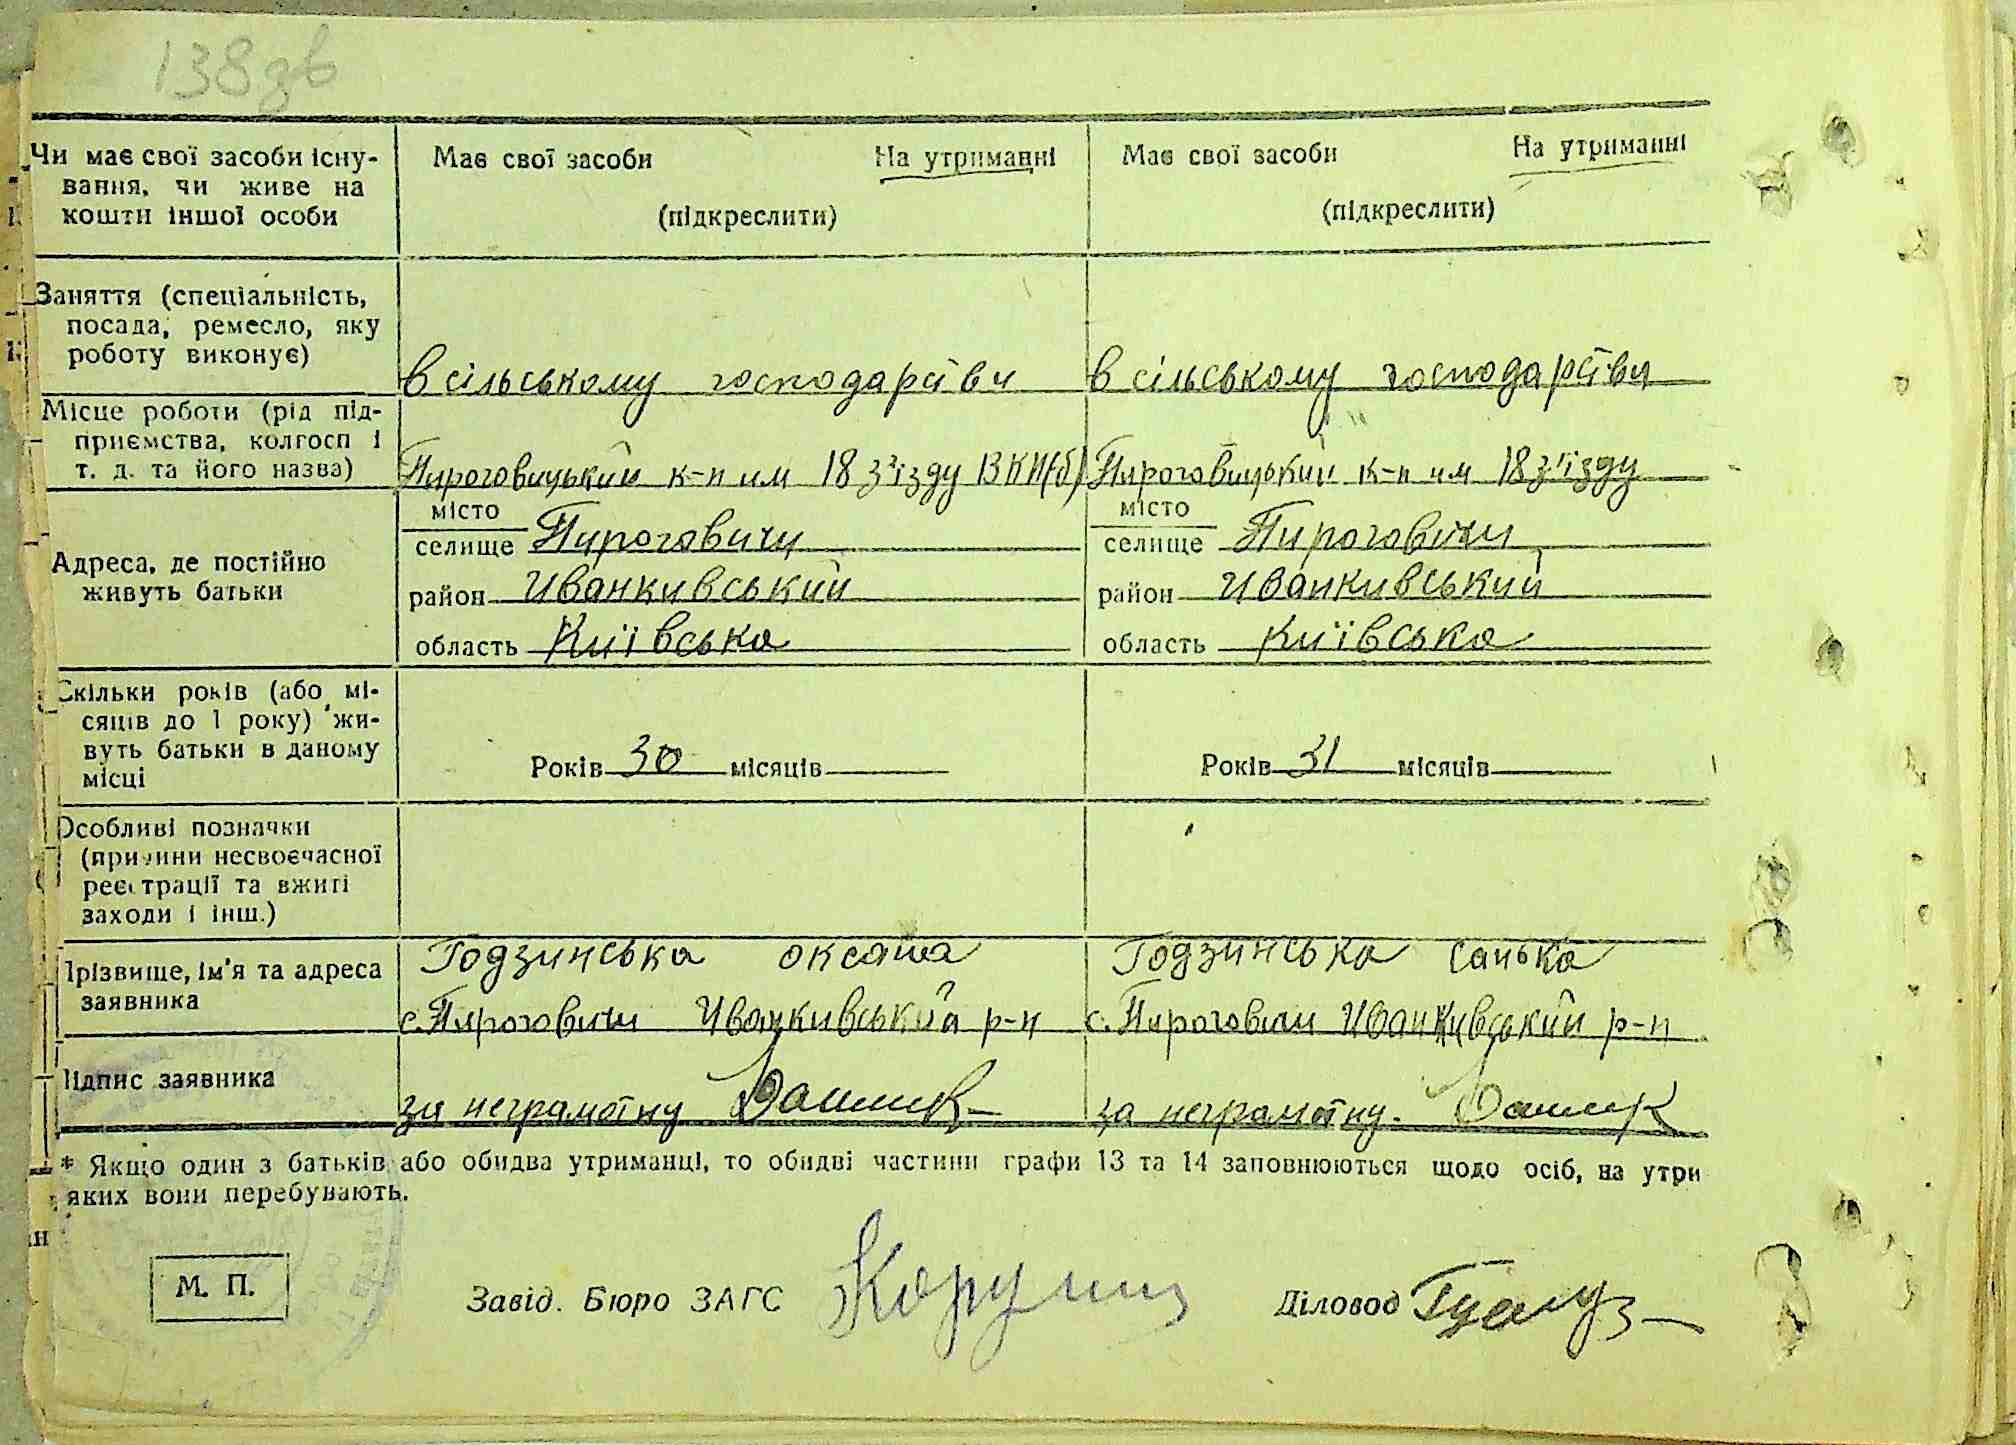 138зв
Чи має свої засоби існу-
вання, чи живе на
кошти іншої особи
Має свої засоби На утриманні
(підкреслити)
Має свої засоби На утриманні
(підкреслити)
Заняття (спеціальність,
посада, ремесло, яку
роботу виконує)
в сільському господарстви
в сільському господарстви
Місце роботи (рід під-
приємства, колгосп і
т. д. та його назва)
Пироговицький к-п им 18 з'їзду ВКП(б)
Пироговицький к-п им 18 з'їзду
Адреса, де постійно
живуть батьки
місто
селище Пироговичи
район Иванкивський
область Київська
місто
селище Пироговичи
район Иванкивський
область Київська
Скільки років (або мі-
сяців до 1 року) жи-
вуть батьки в даному
місці
Років 30 місяців
Років 31 місяців
Особливі позначки
(причини несвоєчасної
реєстрації та вжиті
заходи і інш.)
Прізвище, ім'я та адреса
заявника
Годзинська Оксана
с. Пироговичи Иванкивський р-н
Годзинська Санька
с. Пироговичи Иванкивський р-н
Підпис заявника
за неграмотну
за неграмотну.
* Якщо один з батьків або обидва утриманці, то обидві частини графи 13 та 14 заповнюються щодо осіб, на утри
яких вони перебувають.
М. П.
Завід. Бюро ЗАГС
Діловод